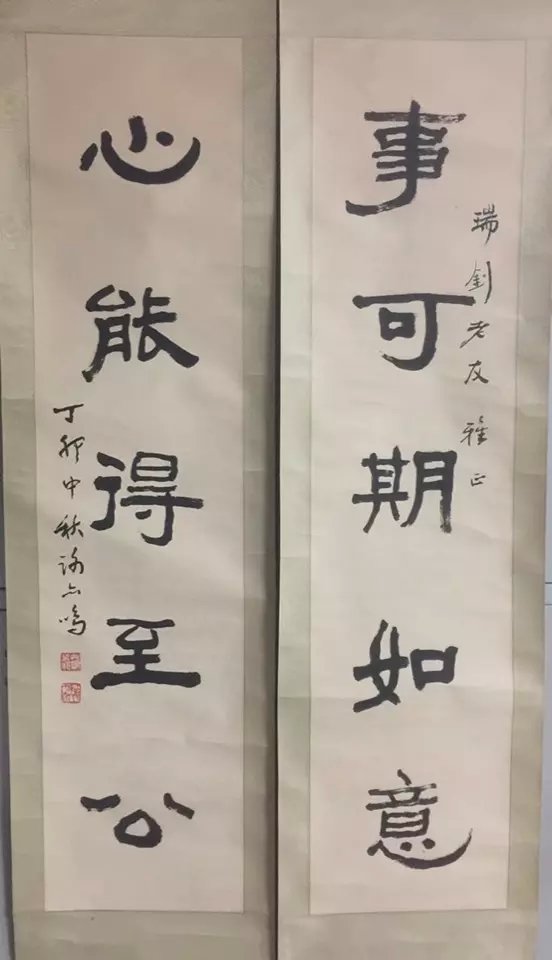 瑞釗老友 雅正
事可期如意
心能得至公
丁卯中秋